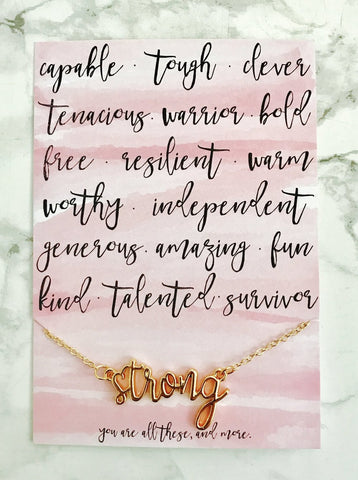 capable · tough · clever
tenacious · warrior · bold
free · resilient · warm
worthy · independent
generous · amazing · fun
kind · talented · survivor
strong
you are all these, and more.